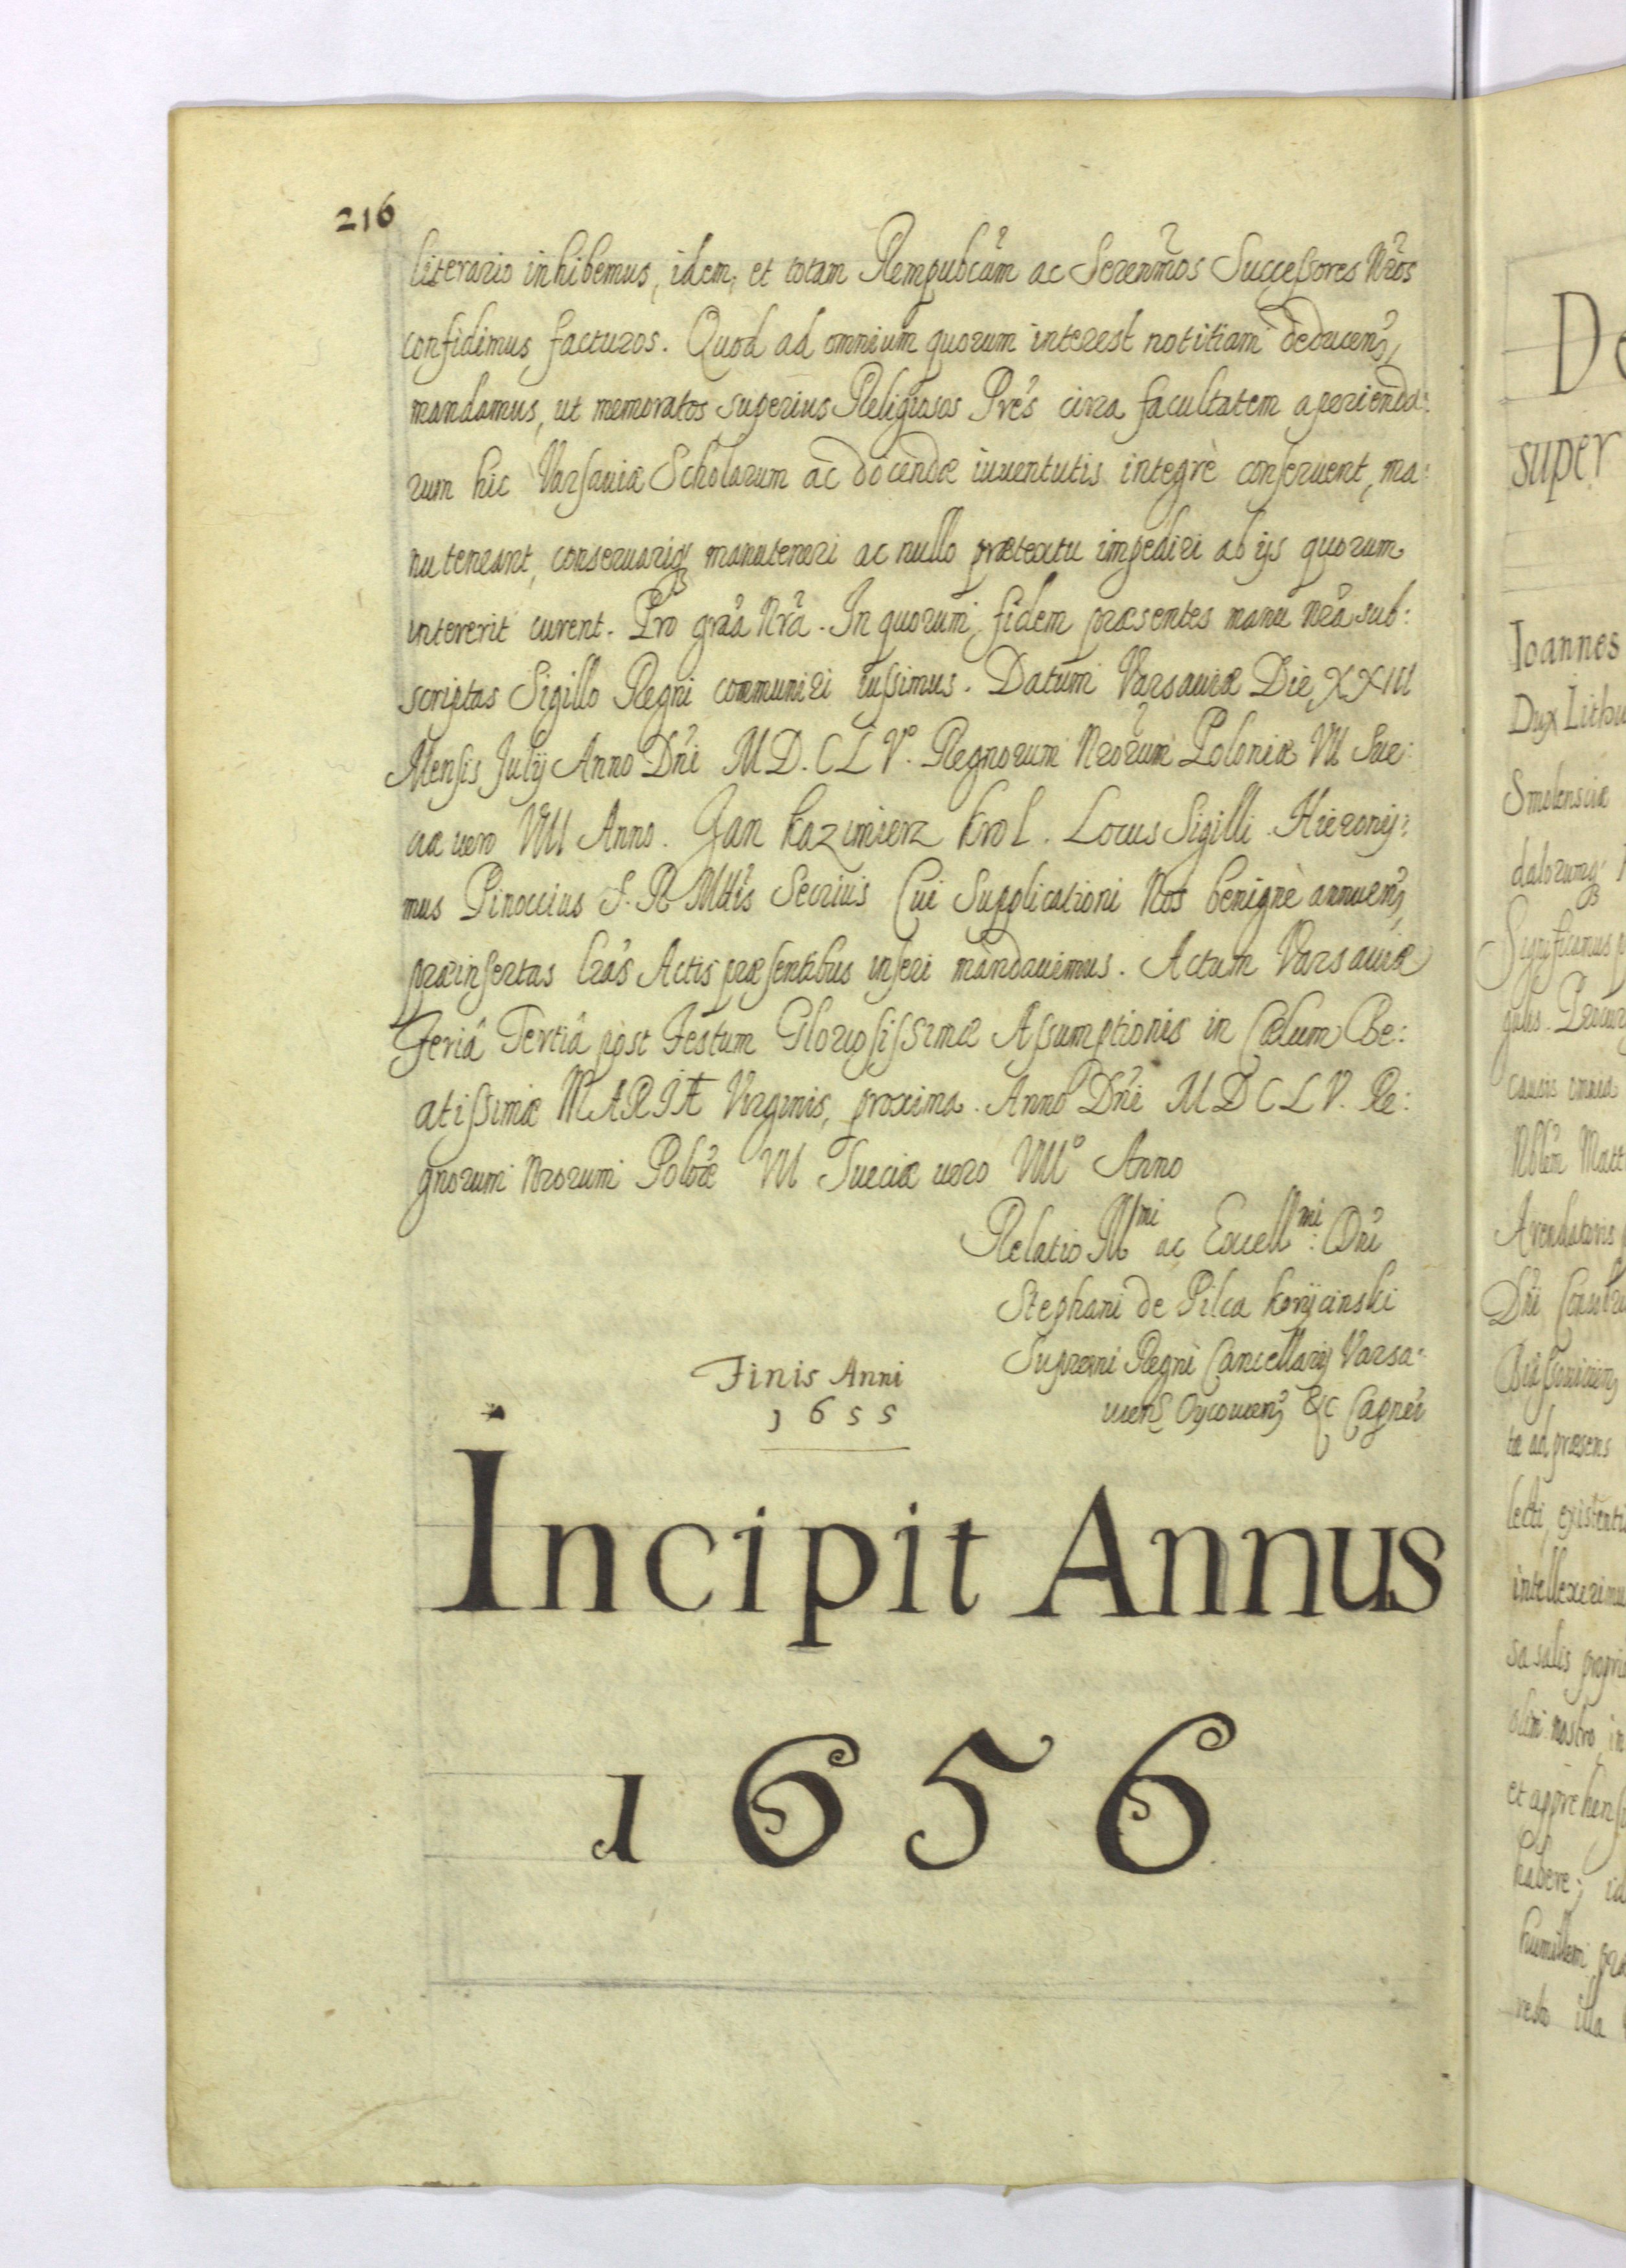 216
literario inhibemus, idem, et totam Rempubcam ac Serenmos Successores Nros
confidimus facturos. Quod ad omnium quorum interest notitiam deducen,
mandamus, ut memoratos superius Religiosos Pres circa facultatem aperienda:
rum hic Varsaviæ Scholarum ac docendæ iuventutis integrè conservent, ma:
nuteneant, conservariq manuteneri ac nullo prætextu impediri ab ijs quorum
intererit curent. Pro gra Nra. In quorum fidem præsentes manu nra sub:
scriptas Sigillo Regni communiri iussimus. Datum Varsaviæ Die XXIII
Mensis Julij Anno Dni M D. C L V. Regnorum Nrorum Poloniæ VII Sue:
ciæ vero VIII Anno. Jan Kazimierz Krol. Locus Sigilli. Hierony:
mus Pinoccius S. R Mttis Secrius Cui Supplicationi Nos benignè annuen,
præinsertas lras Actis præsentibus inseri mandavimus. Actum Varsaviæ
Feriâ Tertiâ post Festum Gloriosissimæ Assumptionis in Cælum Be:
atissimæ MARIÆ Virginis, proxima. Anno Dni M D C L V. Re:
gnorum Nrorum Polonæ VII Sueciæ vero VIII° Anno
Relatio Illmi ac Excellmi: Dni
Stephani de Pilca Korycinski
Supremi Regni Cancellarij Varsa:
vien Oycovien &c Capnei
Finis Anni
1655
Incipit Annus
1656
De
super
Ioannes
Dux Lithu
Smolensciæ
dalorumq
Significamus
causis omnia
Nobilm Matt
Arendatoris
Dni
tæ ad præsens
lecti, existenti
intellexerimu
sa salis propri
olim nostro, in
et apprehens
habere; id
humillem